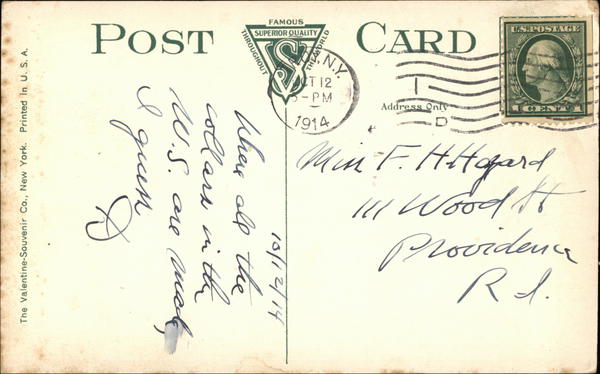 POST CARD
FAMOUS
THROUGHOUT
SUPERIOR QUALITY
THE WORLD
VS
N.Y.
OCT 12
5-PM
1914
1
D
U.S. POSTAGE
1 CENT 1
Address Only
10/12/14
Where all the
collars in the
U.S. are made
I guess
Miss F. H. Hazard
111 Wood St
Providence
R.I.
The Valentine-Souvenir Co., New York. Printed in U. S. A.